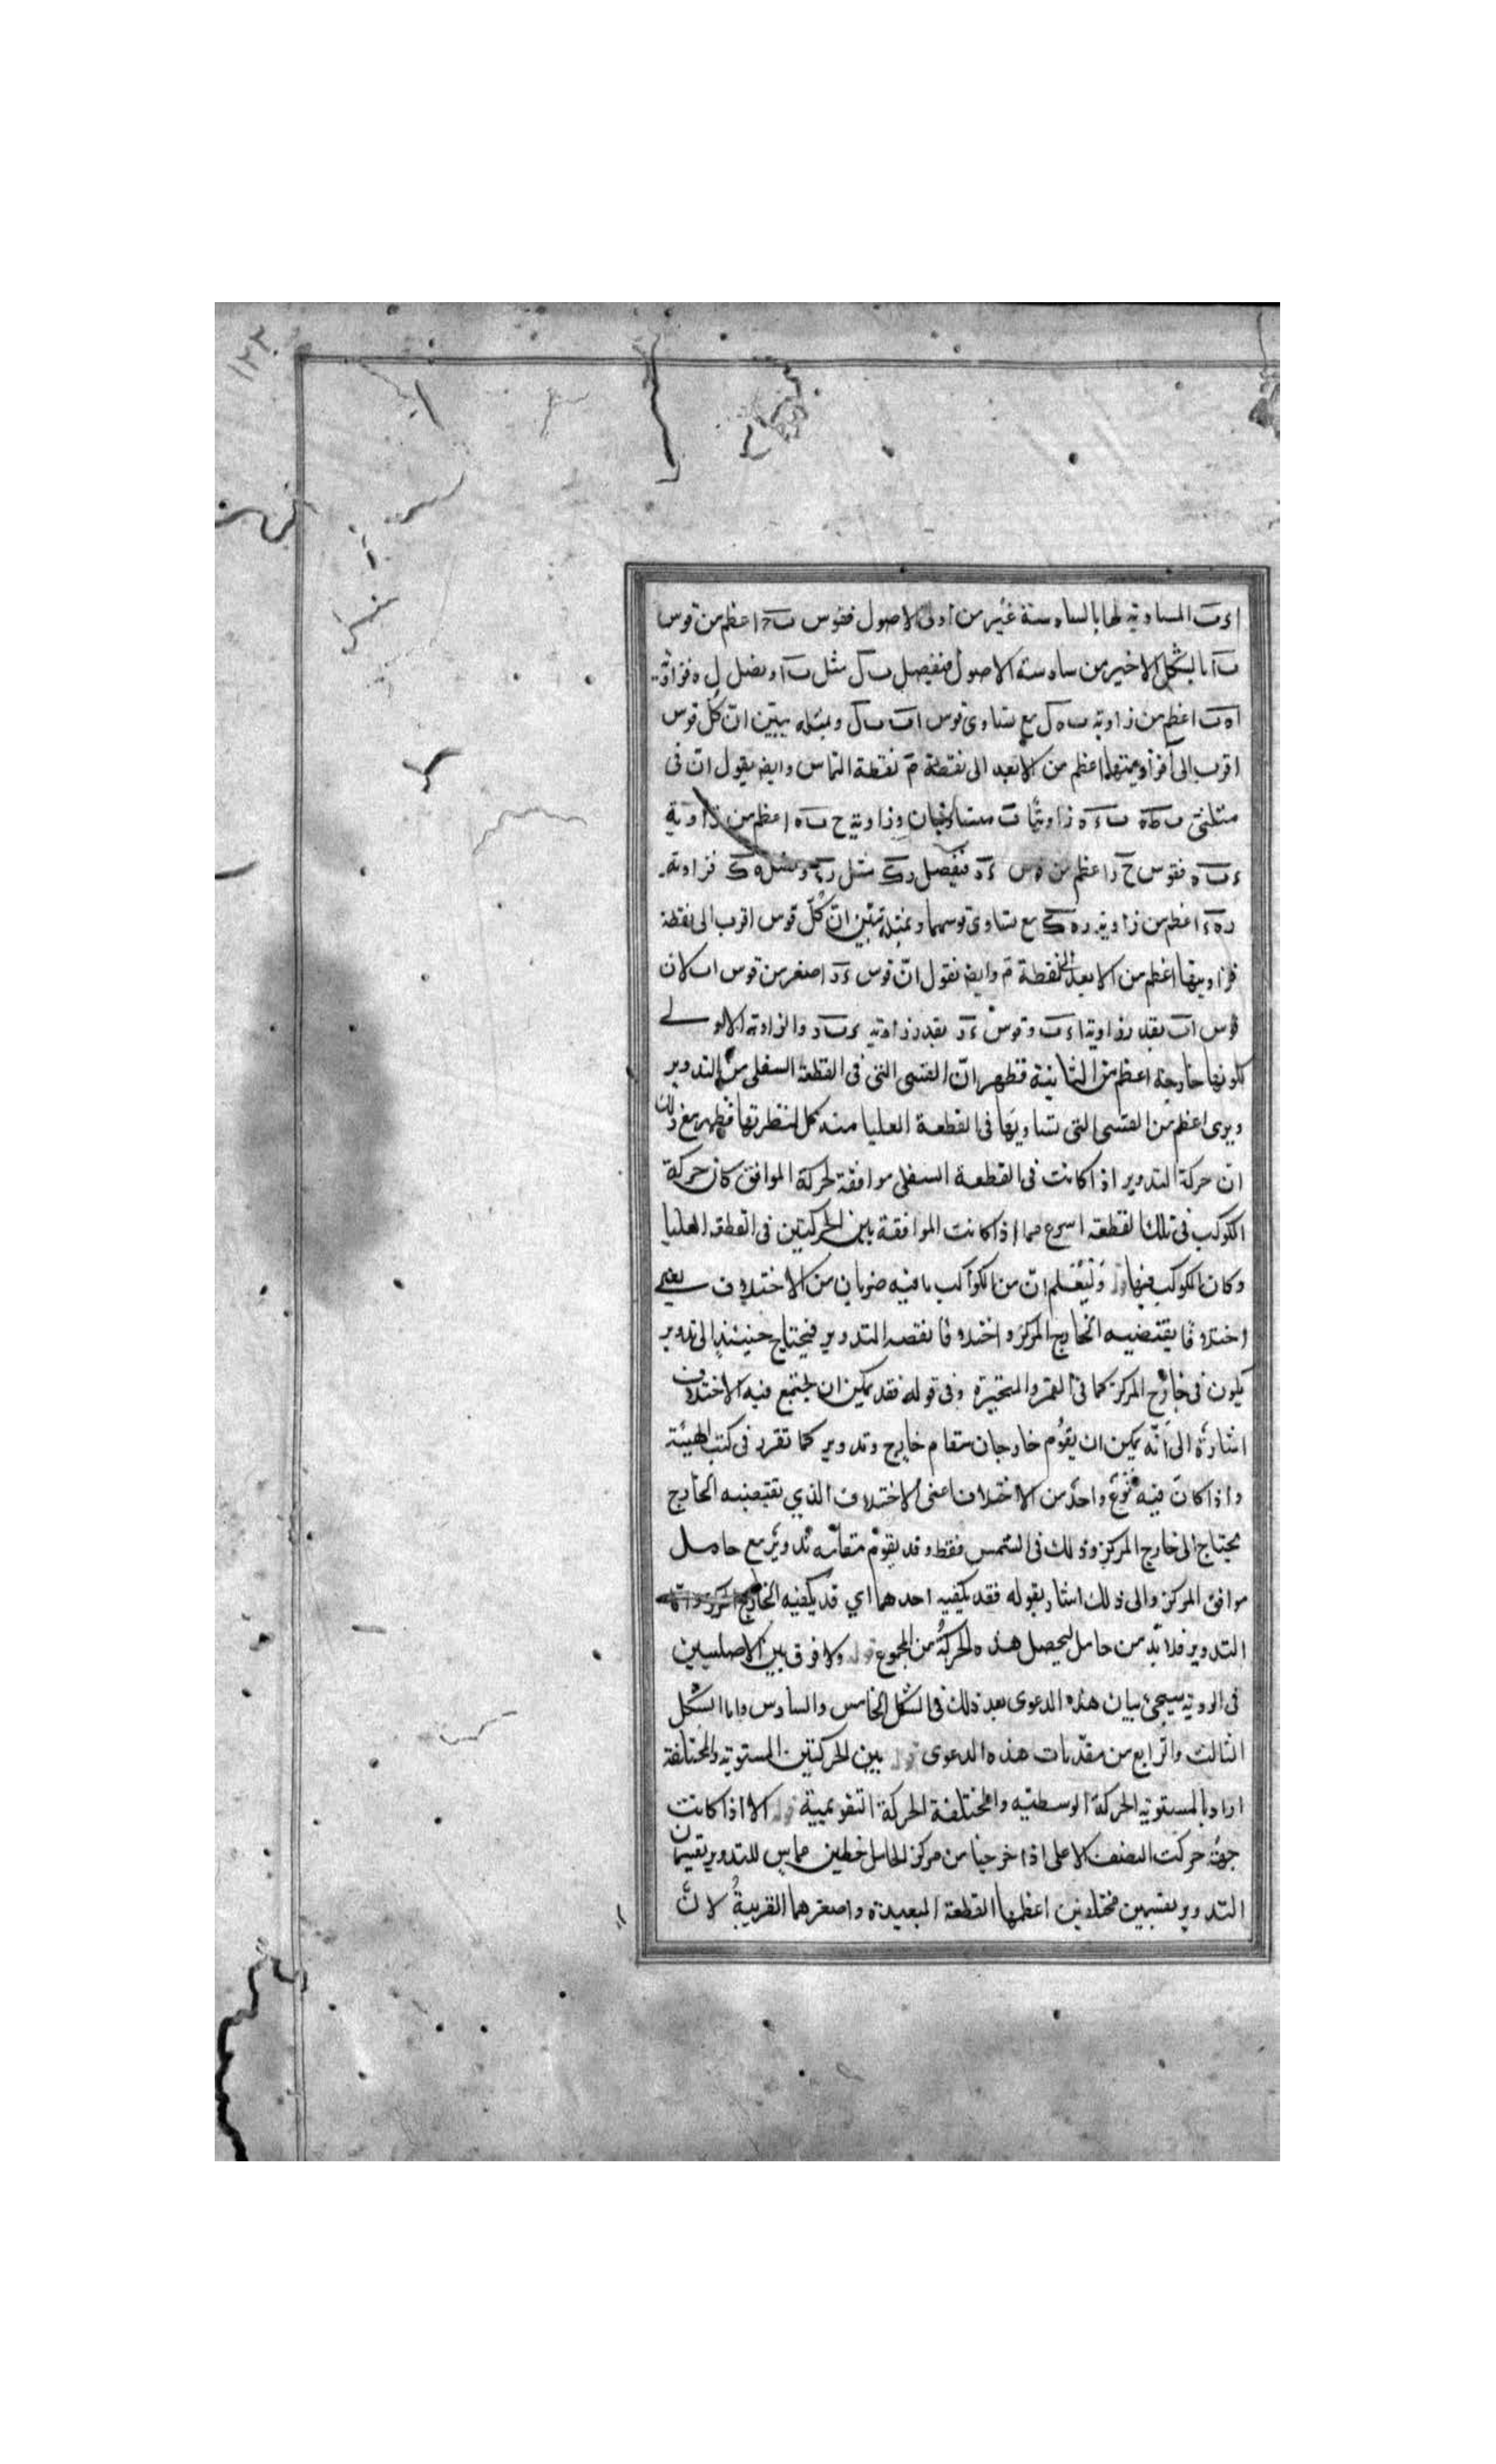 ١٢٢
اءب المساوية لها بالسادسة عشر من اولى الاصول فقوس ب ح اعظم من قوس
ب ا بالشكل الاخير من سادسة الاصول فنفصل ب ل مثل ب ا و نصل ل ه فزاوية
اه ب اعظم من زاوية ب ه ل مع تساوى قوس اب ب ل وبمثله يبيّن انّ كلّ قوس
اقرب الى فزاويتها اعظم من الابعد الى نقطة م نقطة التماس وايض يقول ان فى
مثلثى ب ط ه ب ء ه زاويتا ب متساويتان وزاوية ح ب ه اعظم من زاوية
ء ب ه فقوس ح ر اعظم من قوس ء د فنفصل ر ك مثل فزاوية
ر ه ء اعظم من زاوية ر ه ك مع تساوى قوسهما وبمثله تبيّن انّ كلّ قوس اقرب الى نقطة
فزاويتها اعظم من الابعد الى نقطة م وايض نقول انّ قوس ء د اصغر من قوس اب لان
قوس اب بقدر زاوية اءب وقوس ء د بقدر زاوية ء ب د والزاوية الاولى
لكونها خارجة اعظم من الثانية فظهر انّ القسى التى فى القطعة السفلى من التدوير
ويرى اعظم من القسى التى تساويها فى القطعة العليا منه كل لنظرتها فظهر مع ذلك
ان حركة التدوير اذا كانت فى القطعة السفلى موافقة لحركة الموافق كان حركة
الكوكب فى تلك القطعة اسرع مما اذا كانت الموافقة بين الحركتين فى القطعة العليا
وكان الكوكب فيها قوله وليعلم انّ من الكواكب ما فيه ضربان من الاختلاف يعنى
اختلافا يقتضيه الخارج المركز و اختلافا يقتضيه التدوير فيحتاج حينئذ الى تدوير
يكون فى خارج المركز كما فى القمر والمتحيرة وفى قوله فقد يمكن ان يجتمع فيه الاختلافان
اشارة الى انّه يمكن ان يقوم خارجان مقام خارج وتدوير كما تقرر فى كتب الهيئة
واذا كان فيه نوع واحد من الاختلاف اعنى الاختلاف الذي يقتضيه الخارج
يحتاج الى خارج المركز وذلك فى الشمس فقط وقد يقوم مقامه تدوير مع حامل
موافق المركز والى ذلك اشار بقوله فقد يكفيه احدهما اي قد يكفيه الخارج المركز واما
التدوير فلا بدّ من حامل ليحصل هذه الحركة من المجموع قوله ولا فرق بين الاصلين
فى الروية سيجئ بيان هذه الدعوى بعد ذلك فى الشكل الخامس والسادس واما الشكل
الثالث والرابع من مقدمات هذه الدعوى قوله بين الحركتين المستوية والمختلفة
اراد بالمستوية الحركة الوسطية والمختلفة الحركة التقويمية قوله الا اذا كانت
جهة حركت النصف الاعلى اذا خرجنا من مركز الحامل خطين مماس للتدوير يقسمان
التدوير بقسمين مختلفين اعظمها القطعة البعيدة واصغرهما القريبة لانّ